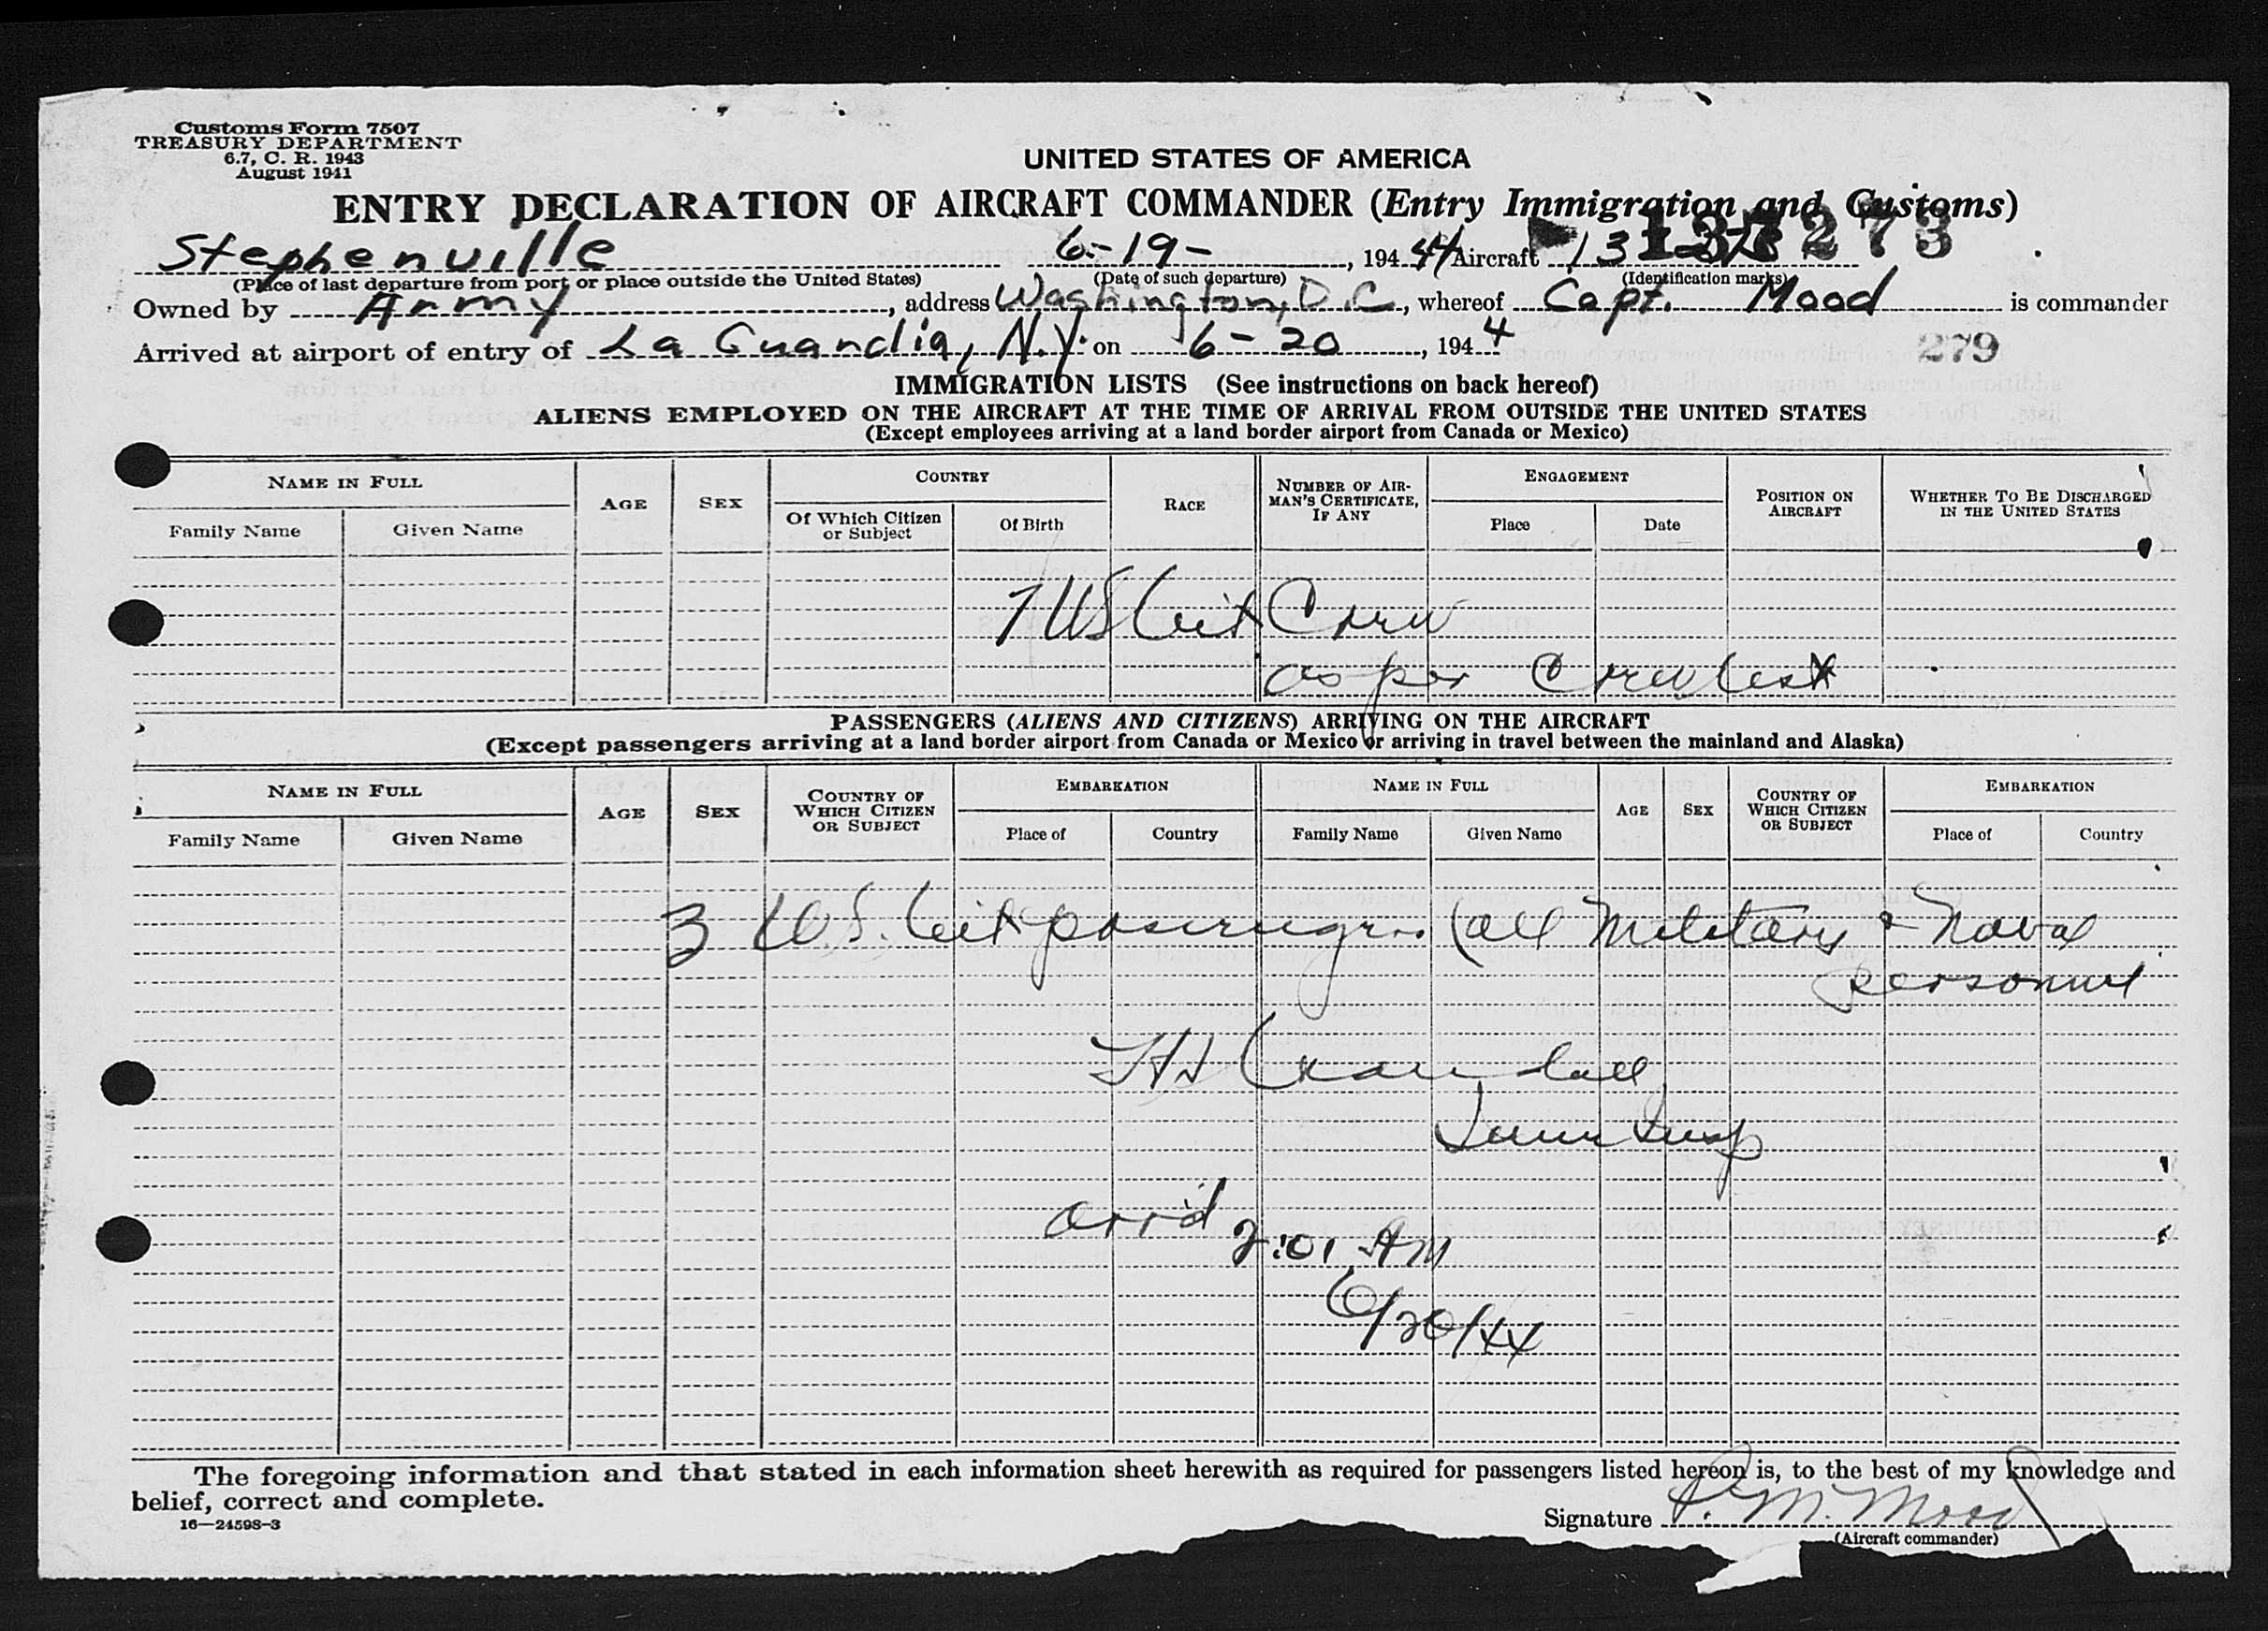 Customs Form 7507
TREASURY DEPARTMENT
6.7, C. R. 1943
August 1941
UNITED STATES OF AMERICA
ENTRY DECLARATION OF AIRCRAFT COMMANDER (Entry Immigration and Customs)
Stephenville 6-19-, 194 44 Aircraft
(Place of last departure from port or place outside the United States) (Date of such departure) (Identification marks)
Owned by Army, address Washington, D.C., whereof Capt. Mood is commander
Arrived at airport of entry of La Guardia, N.Y. on 6-20, 194 4
279
IMMIGRATION LISTS (See instructions on back hereof)
ALIENS EMPLOYED ON THE AIRCRAFT AT THE TIME OF ARRIVAL FROM OUTSIDE THE UNITED STATES
(Except employees arriving at a land border airport from Canada or Mexico)
NAME IN FULL AGE SEX COUNTRY RACE NUMBER OF AIRMAN'S CERTIFICATE, IF ANY ENGAGEMENT POSITION ON AIRCRAFT WHETHER TO BE DISCHARGED IN THE UNITED STATES
Family Name Given Name Of Which Citizen or Subject Of Birth Place Date
7 US Cit Crew
as per Crew list
PASSENGERS (ALIENS AND CITIZENS) ARRIVING ON THE AIRCRAFT
(Except passengers arriving at a land border airport from Canada or Mexico or arriving in travel between the mainland and Alaska)
NAME IN FULL AGE SEX COUNTRY OF WHICH CITIZEN OR SUBJECT EMBARKATION NAME IN FULL AGE SEX COUNTRY OF WHICH CITIZEN OR SUBJECT EMBARKATION
Family Name Given Name Place of Country Family Name Given Name Place of Country
3 U.S. Cit passengers (all Military & Naval
personnel
Crandall
Insp
arr'd 2:01 AM
6/20/44
The foregoing information and that stated in each information sheet herewith as required for passengers listed hereon is, to the best of my knowledge and
belief, correct and complete.
16—24598-3
Signature M. Mood
(Aircraft commander)